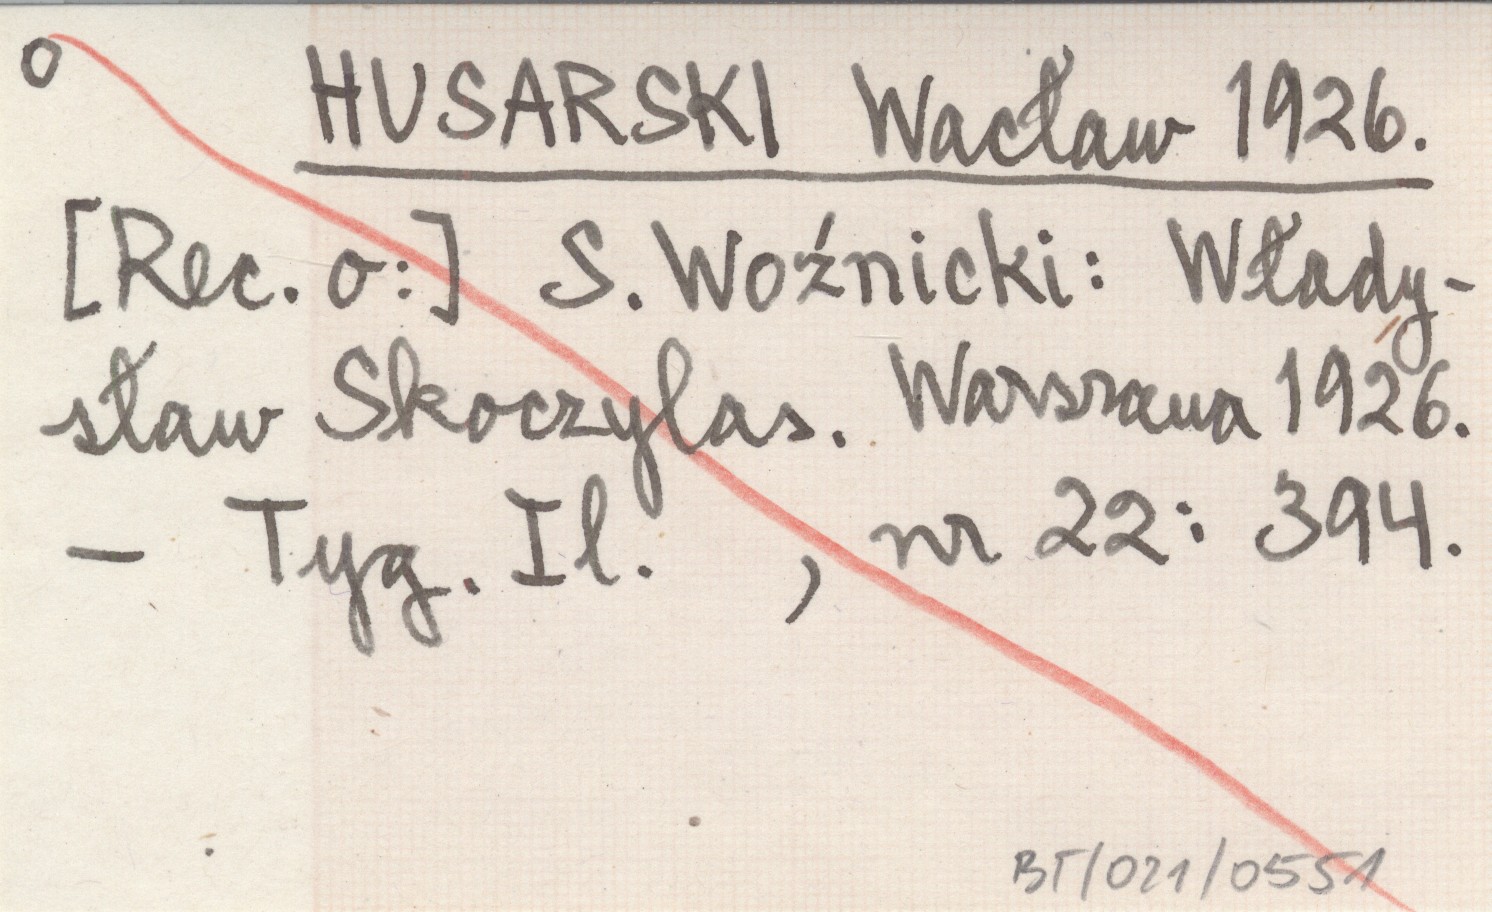 o
HUSARSKI Wacław 1926.
[Rec. o:] S. Woźnicki: Włady-
sław Skoczylas. Warszawa 1926.
— Tyg. Il. , nr 22: 394.
BT/021/0551